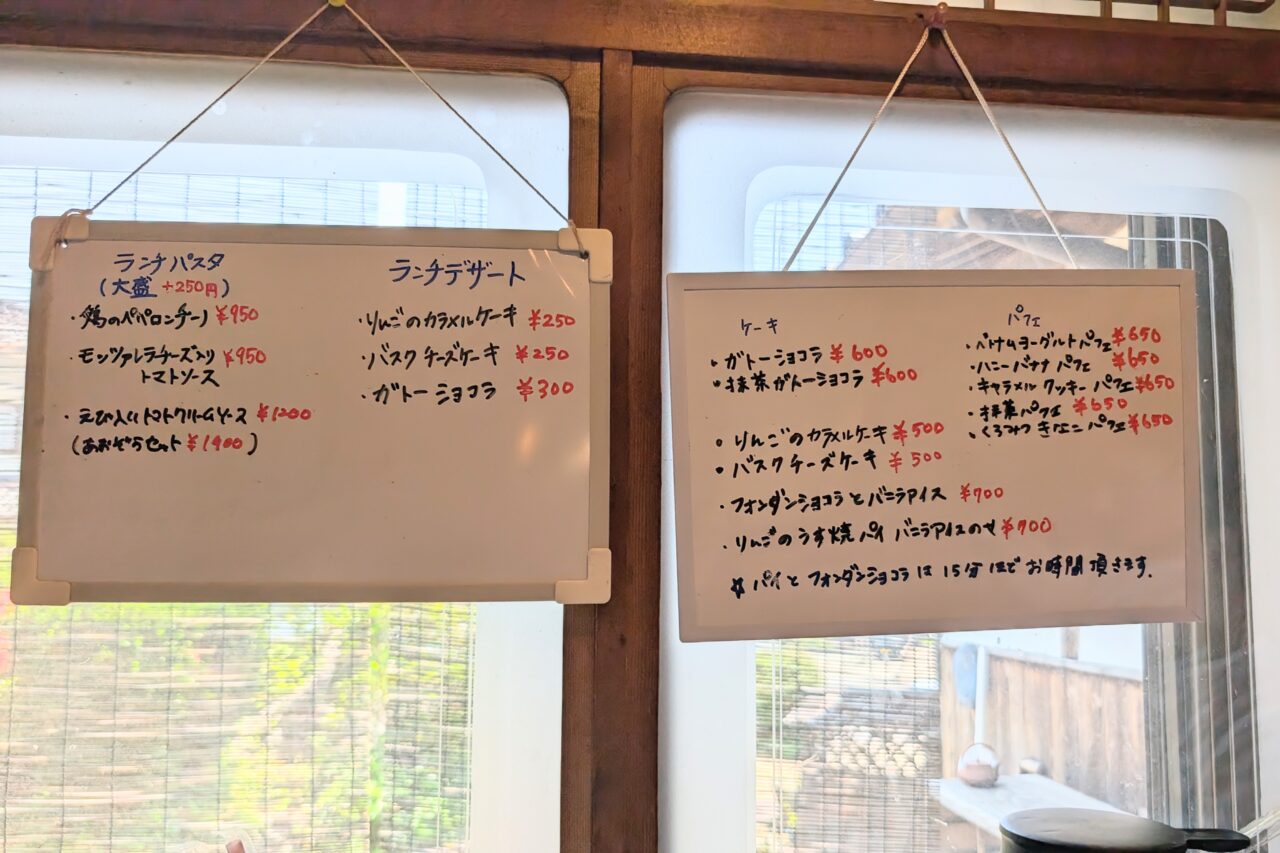 ランチパスタ
(大盛 +250円)
・鶏のペペロンチーノ ¥950
・モッツァレラチーズ入り ¥950
トマトソース
・えび入りトマトクリームソース ¥1200
(あおぞらセット ¥1400)
ランチデザート
・りんごのカラメルケーキ ¥250
・バスクチーズケーキ ¥250
・ガトーショコラ ¥300
ケーキ
・ガトーショコラ ¥600
・抹茶ガトーショコラ ¥600
・りんごのカラメルケーキ ¥500
・バスクチーズケーキ ¥500
・フォンダンショコラとバニラアイス ¥700
・りんごのうす焼パイ バニラアイスのせ ¥700
☆パイとフォンダンショコラは15分ほどお時間頂きます.
パフェ
・ベトナムヨーグルトパフェ ¥650
・ハニーバナナパフェ ¥650
・キャラメルクッキーパフェ ¥650
・抹茶パフェ ¥650
・くろみつきなこパフェ ¥650